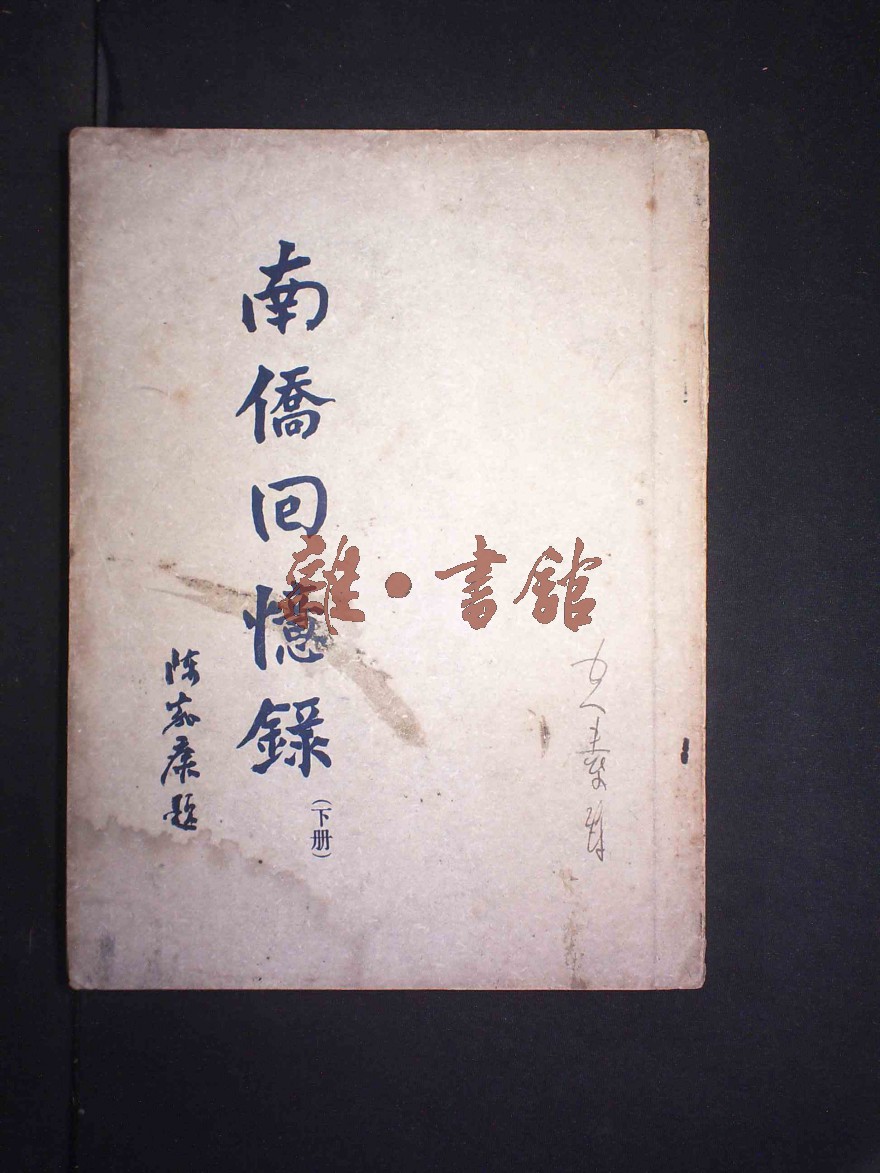 南僑回憶錄
（下册）
陈嘉庚題
雜·書館